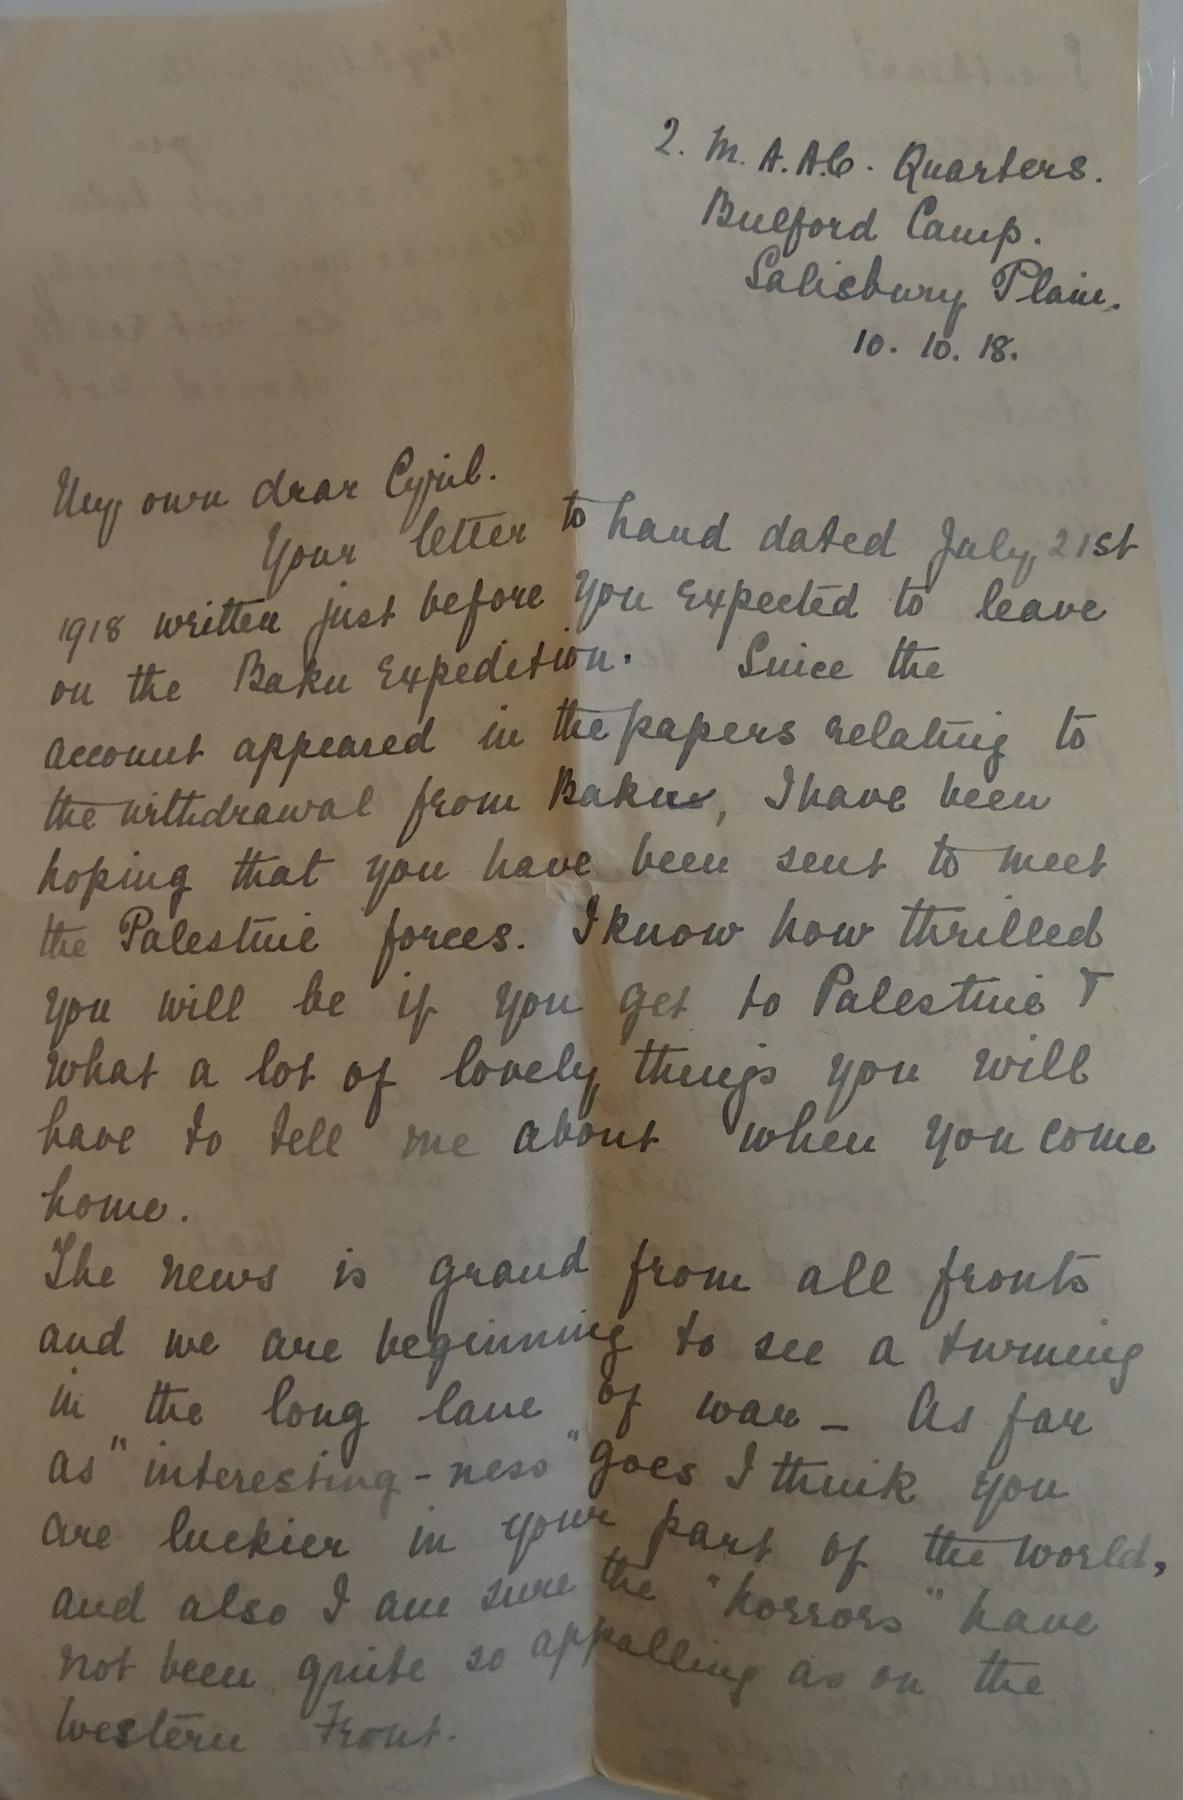 2. M. A. A. C. Quarters.
Bulford Camp.
Salisbury Plain.
10. 10. 18.
My own dear Cyril.
Your letter to hand dated July 21st
1918 written just before you expected to leave
on the Baku Expedition. Since the
account appeared in the papers relating to
the withdrawal from Baku, I have been
hoping that you have been sent to meet
the Palestine forces. I know how thrilled
you will be if you get to Palestine &
what a lot of lovely things you will
have to tell me about when you come
home.
The news is grand from all fronts
and we are beginning to see a turning
in the long lane of war – As far
as "interesting-ness" goes I think you
are luckier in your part of the world,
and also I am sure the "horrors" have
not been quite so appalling as on the
Western Front.